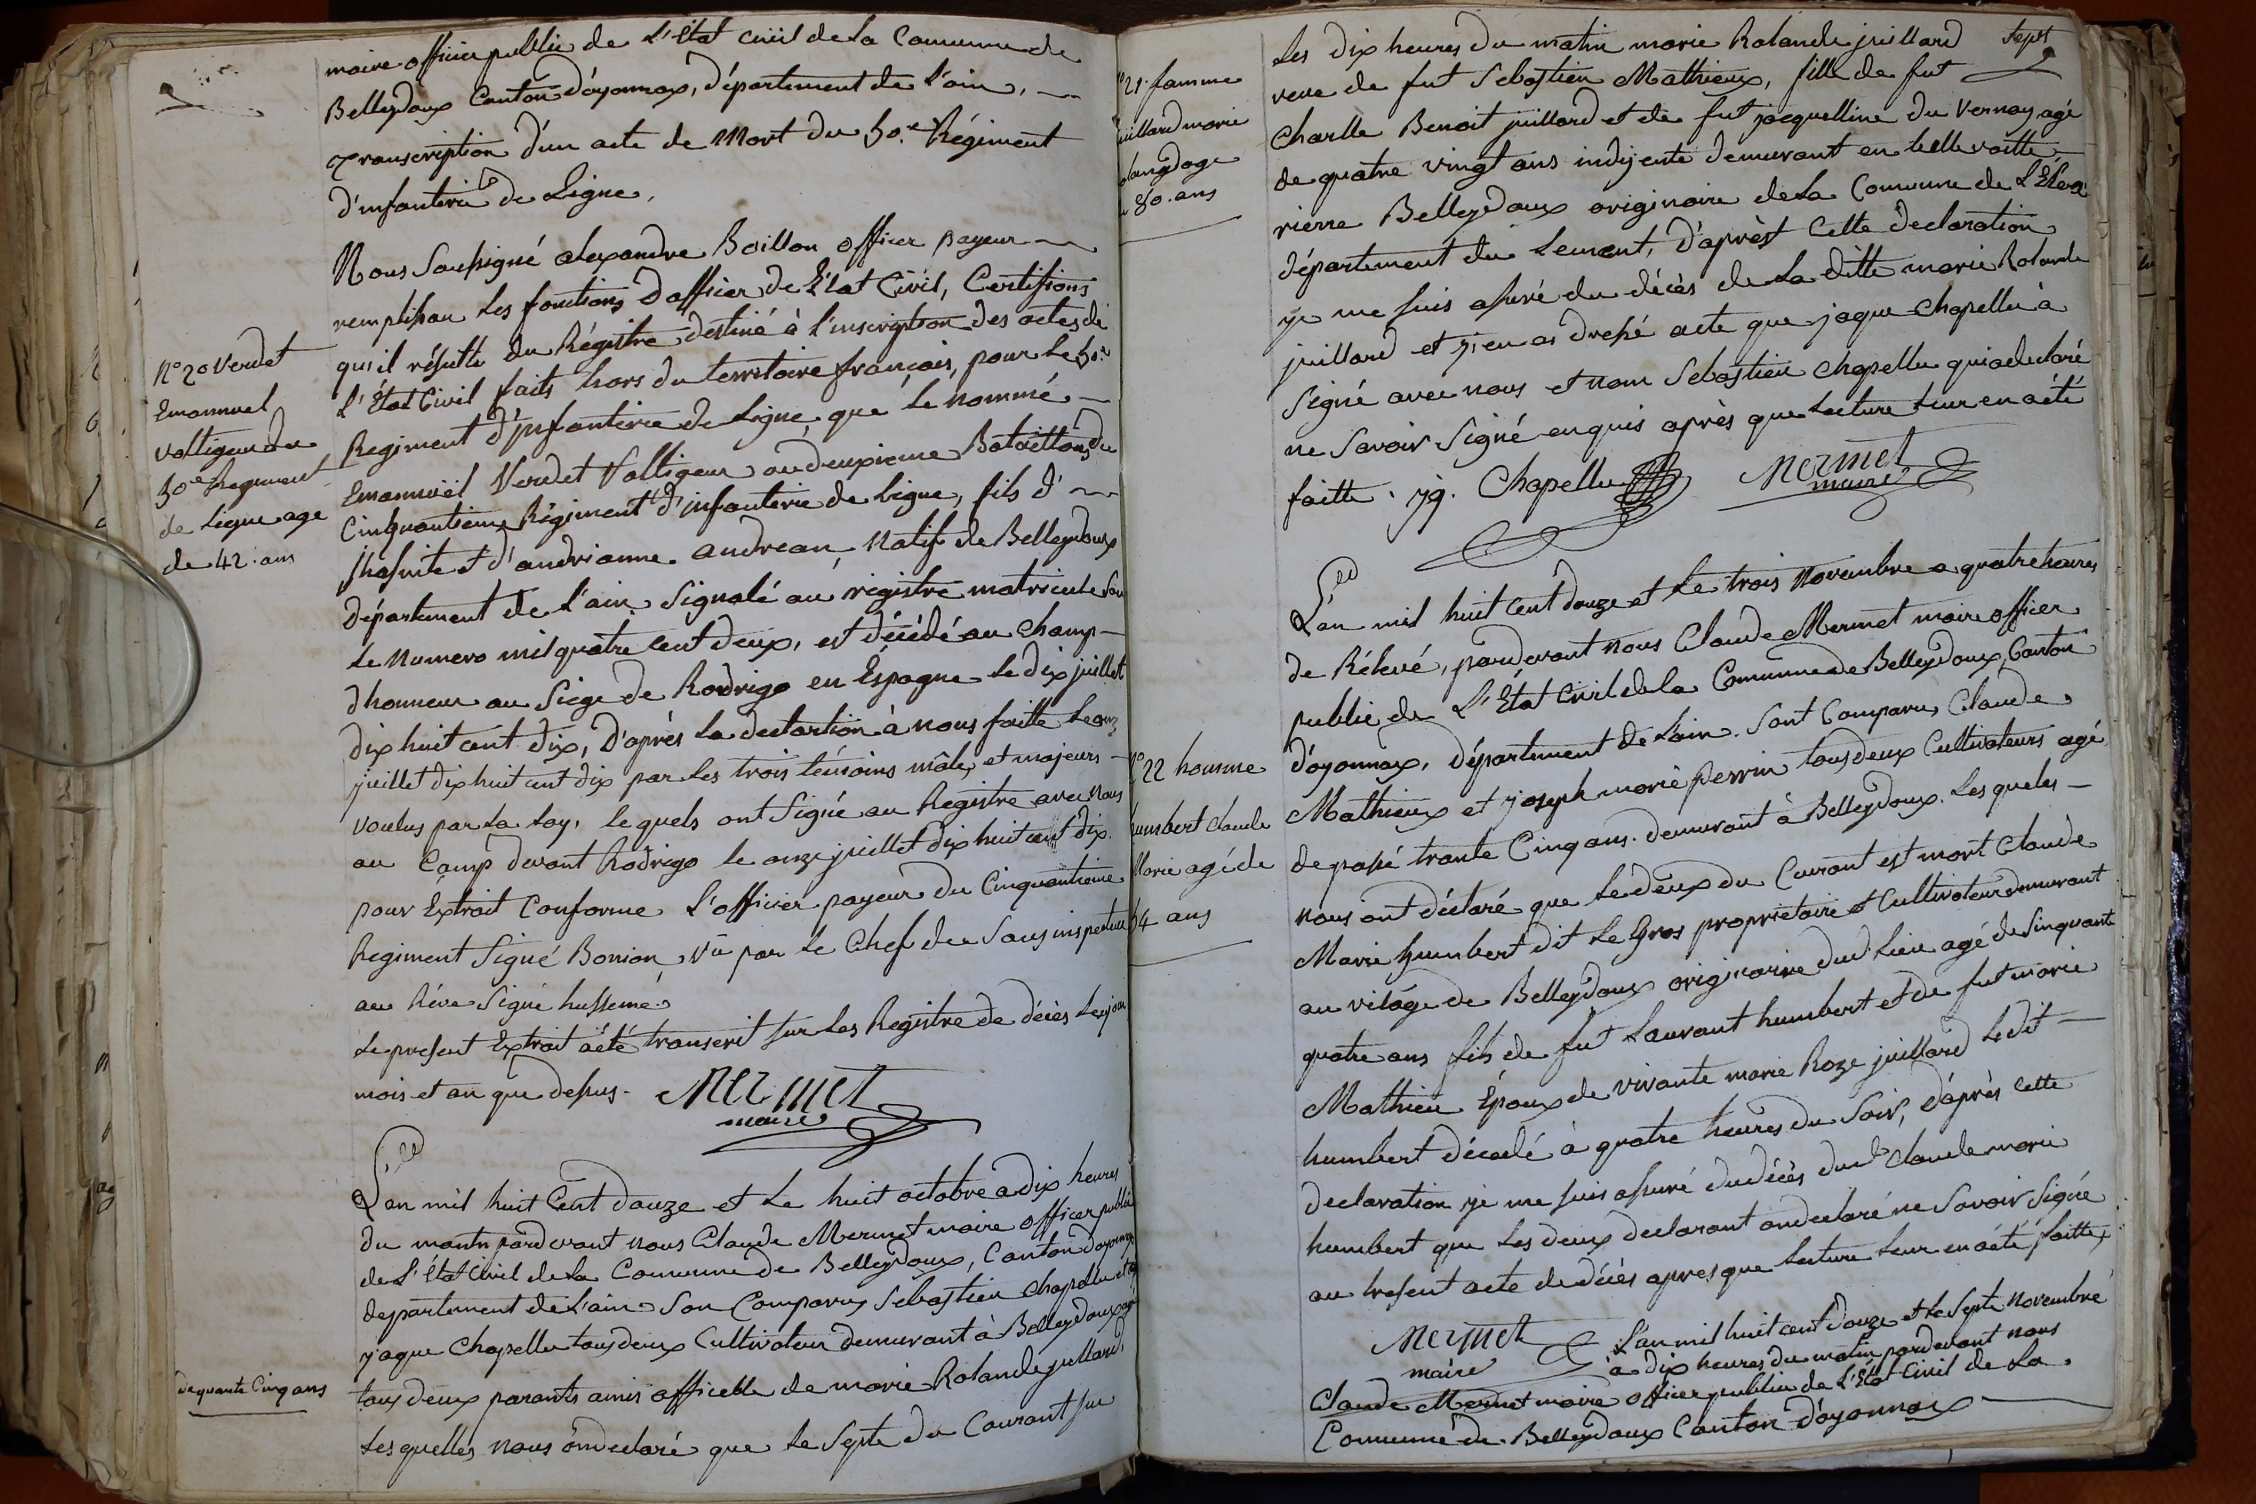 maire officier public de L'Etat civil de la Commune de
Belleydoux Canton d'oyonnax, département de l'ain,
transcription d'un acte de Mort du 50.e Régiment
d'infanterie de Ligne,
Nous Soussigné alexandre Boillon officier payeur
remplissan les fonctions d'officier de l'État Civil, Certifions
qu'il résulte du Régistre destiné à l'inscription des actes de
L'État Civil faits hors du territoire françois, pour le 50.e
Regiment d'Infanterie de Ligne, que le nommé
Emannuël Verdet Voltigeur au deuxieme Bataillons du
Cinquantieme Régiment d'infanterie de Ligne, fils d'
et d'andrianne andrean, Natif de Belleydoux
Département de L'ain, Signalé au régistre matricule sou
Le Numero mil quatre cent deux, est décédé au Champ
dhonneur au Siege de Rodrigo en Espagne le dix juillet
dix huit cent dix, D'après la declartion à nous faitte le onze
juillet dix huit cent dix par les trois témoins mâles et majeurs
voulus par la Loy, lequels ont Signé au Registre avec Nous
au Camp devant Rodrigo le onze juillet dix huit cent dix.
pour Extrait Conforme L'officier payeur du Cinquantieme
Regiment Signé Bonion, Vû par le Chef de Sous inspecteur
au Réve Signé
Le present Extrait a été transcrit sur les Registre de décès le jour
mois et an que desus. Mermet
maire
N° 20 Verdet
Emannuel
voltigeur du
50e Regiment
de Ligne age
de 42 ans
L'an mil huit Cent douze et Le huit octobre a dix heures
du matin pardevant nous Claude Mermet maire officier public
de L'Etat Civil de la Commune de Belleydoux, Canton d'oyonnax
departement de L'ain Son Comparus Sebastien Chapellu et
jaque Chapellu tous deux Cultivateur demurant à Belleydoux agé
de quarante Cinq ans
tous deux parants amis officelle de marie Rolande juillard,
Les quelles nous ondeclaré que le Septe du Courant sur
Sept
Les dix heures du matin marie Rolande juillard
veve de fut Sebastien Mathieux, fille de fut
Charlle Benoit juillard et de fut jacquelline du Vernay agé
de quatre vingt ans indijente demurant en
rierre Belleydoux originaire de la Commune de L'Elea
département du Lement, D'aprèst Cette Declaration
je me suis assuré du décès de la ditte marie Rolande
juillard et j'en ai dressé acte que jaque Chapellu à
Signé avec nous et non Sebastien Chapellu quia declaré
ne Savoir Signé enquis après que lecture leur en a été
faitte. Chapellu Mermet
maire
21. famme
juillard marie
Roland age
80. ans
L'an mil huit Cent douze et Le trois Novembre a quatre heures
de Rélevé, pardevant nous Claude Mermet maire officier
public de L'État Civil de la Commune de Belleydoux, Canton
d'oyonnax, département de L'ain. Sont Comparus Claude
Mathieux et joseph marie perrin tous deux Cultivateurs agé
de passé trante Cinq ans. demurant à Belleydoux. Les queles
nous ont déclaré que Le deux du Courant est mort Claude
Marie humbert dit Le Gros proprietaire et Cultivateur demurant
au vilage de Belleydoux originaire dud Lieu agé de Sinquante
quatre ans fils de fut Laurant humbert et de fut marie
Mathieu Époux de vivante marie Roze juillard Ledit
humbert décedé à quatre heures du Soir, d'après cette
declaration je me suis assuré du décès dud Claude marie
humbert que Les deux declarant ondeclaré ne Savoir Signé
au present acte de décès apres que Lecture leur en a été faitte,
N° 22 homme
humbert claude
Marie agé de
54 ans
Mermet
maire
L'an mil huit cent douze et Le Septe Novembre
à dix heures du matin pardevant nous
Claude Mermet maire officier public de L'État Civil de La
Commune de Belleydoux Canton d'oyonnax